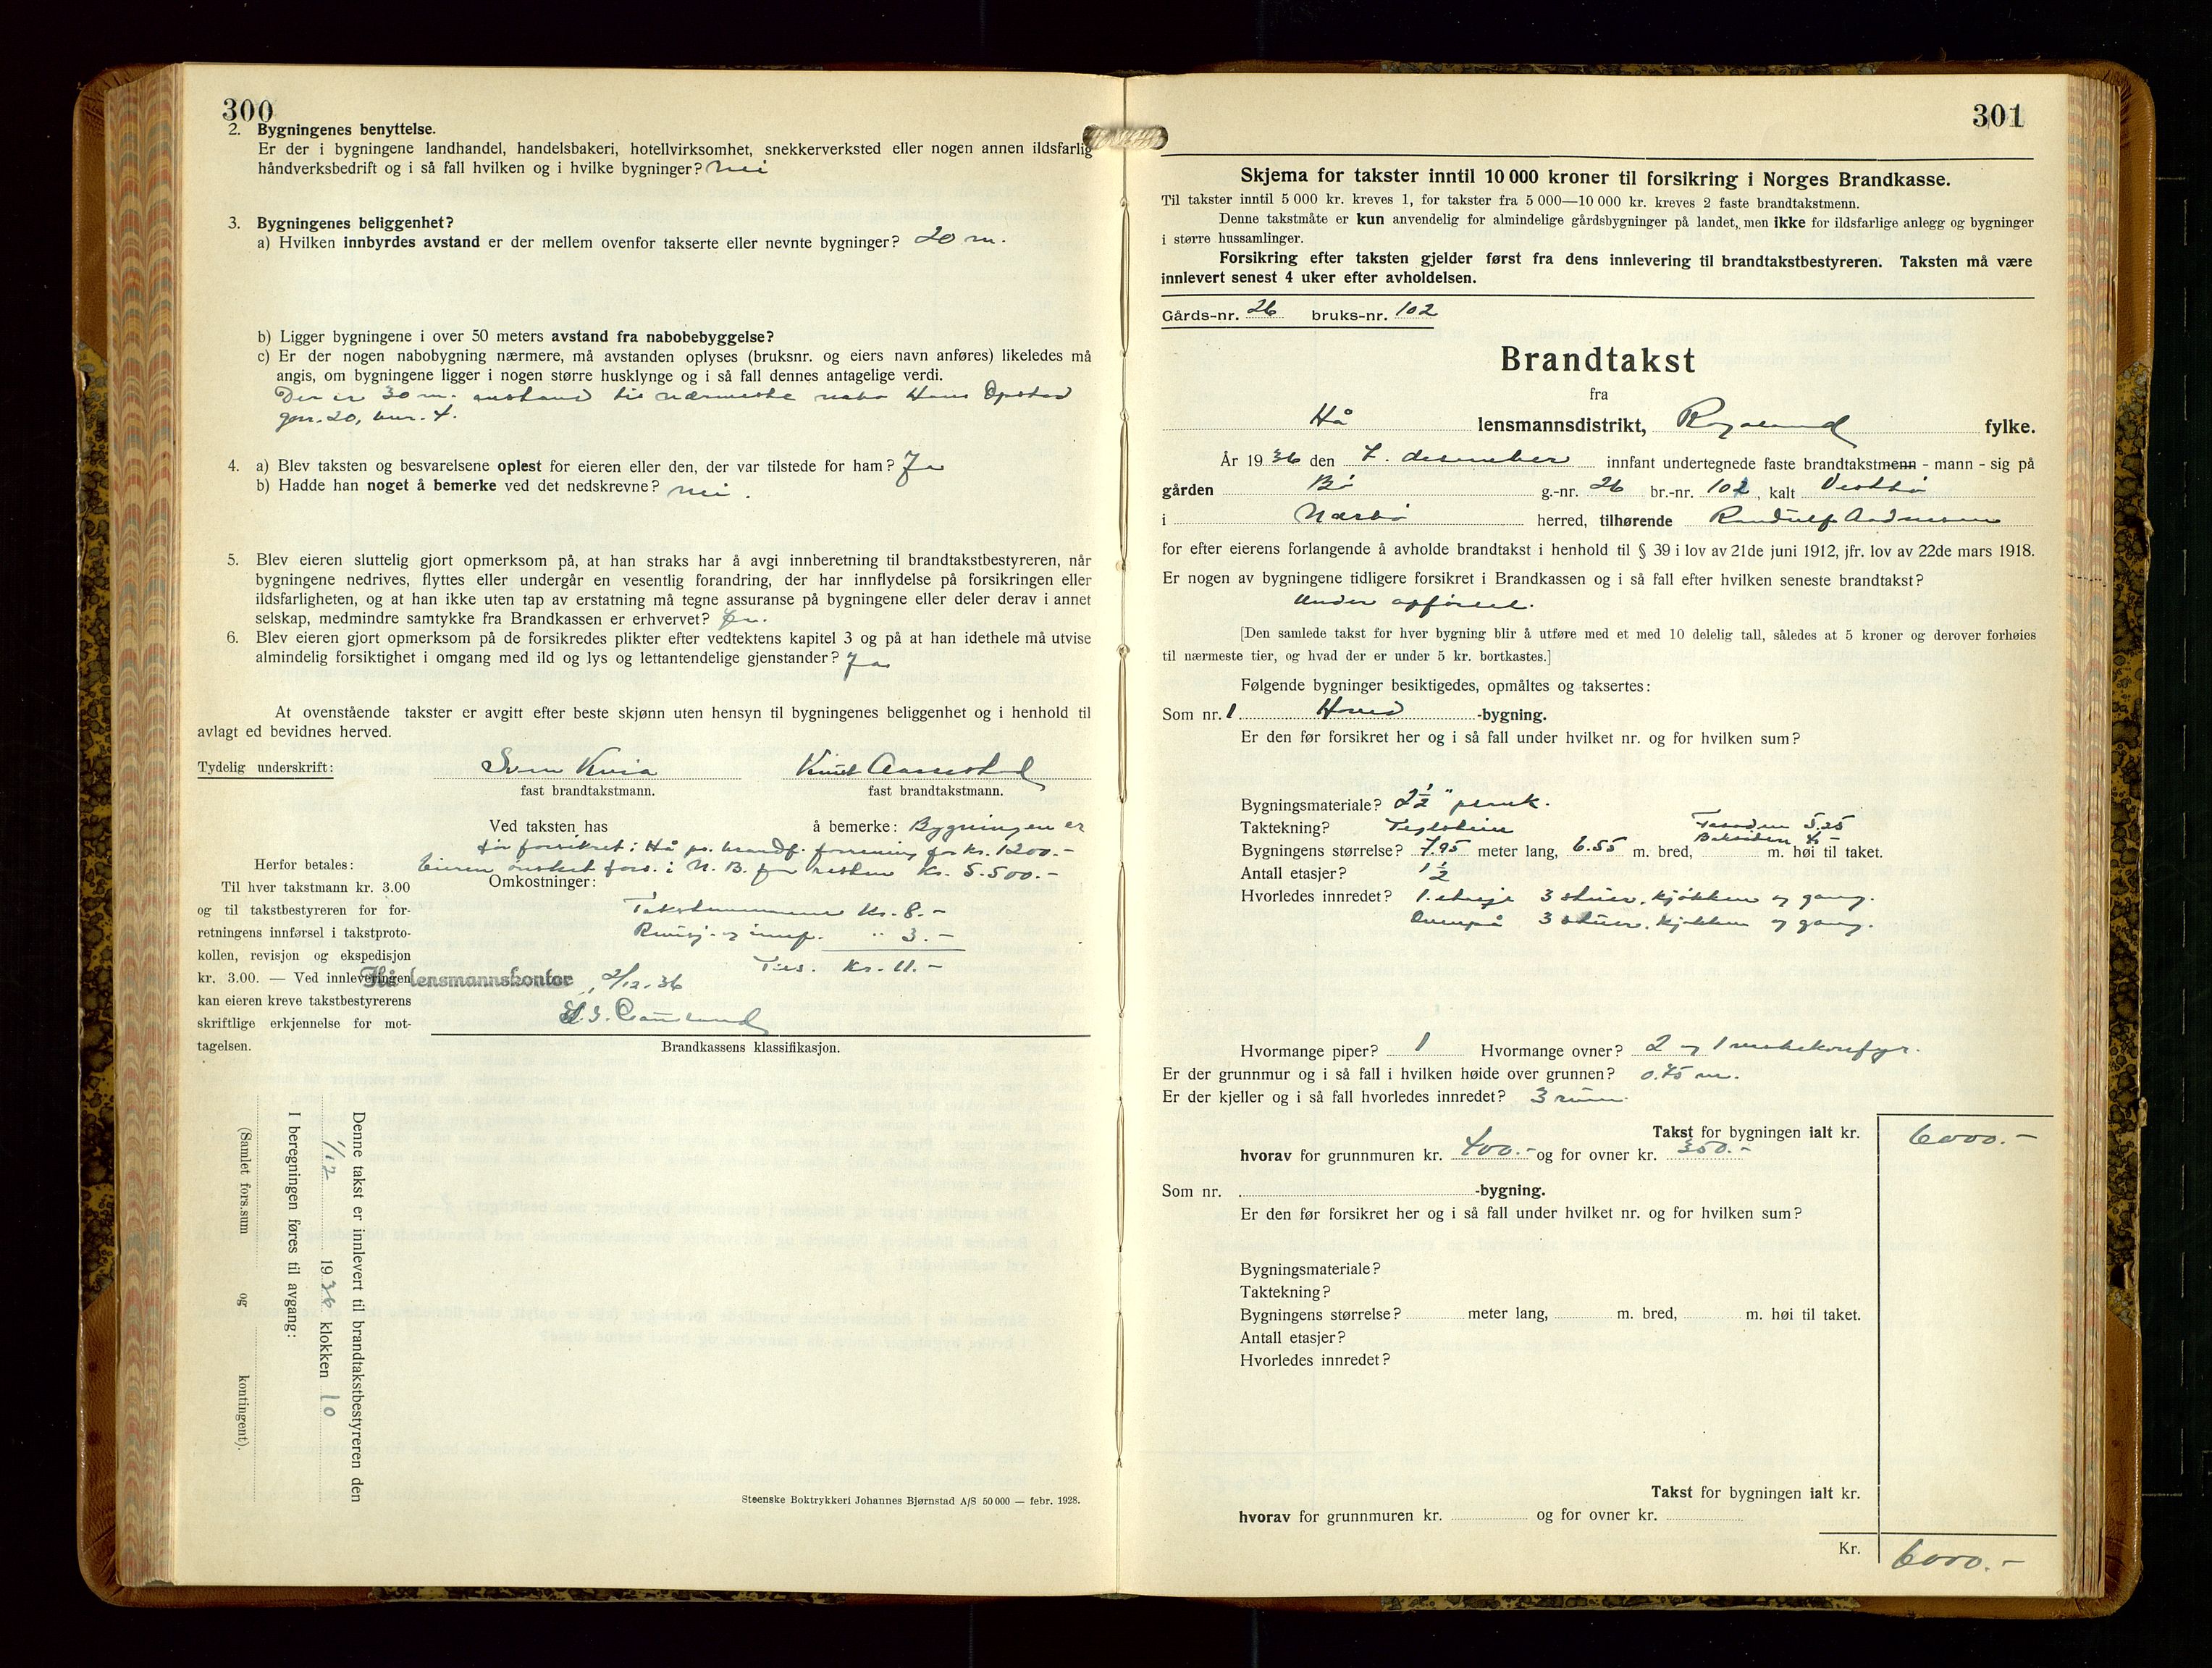 300
2. Bygningenes benyttelse.
Er der i bygningene landhandel, handelsbakeri, hotellvirksomhet, snekkerverksted eller nogen annen ildsfarlig
håndverksbedrift og i så fall hvilken og i hvilke bygninger? nei
3. Bygningenes beliggenhet?
a) Hvilken innbyrdes avstand er der mellem ovenfor takserte eller nevnte bygninger? 20 m.
b) Ligger bygningene i over 50 meters avstand fra nabobebyggelse?
c) Er der nogen nabobygning nærmere, må avstanden oplyses (bruksnr. og eiers navn anføres) likeledes må
angis, om bygningene ligger i nogen større husklynge og i så fall dennes antagelige verdi.
Der er 30 m. avstand til nærmeste nabo Hans Opstad
gnr. 20, bnr. 4.
4. a) Blev taksten og besvarelsene oplest for eieren eller den, der var tilstede for ham? Ja
b) Hadde han noget å bemerke ved det nedskrevne? nei.
5. Blev eieren sluttelig gjort opmerksom på, at han straks har å avgi innberetning til brandtakstbestyreren, når
bygningene nedrives, flyttes eller undergår en vesentlig forandring, der har innflydelse på forsikringen eller
ildsfarligheten, og at han ikke uten tap av erstatning må tegne assuranse på bygningene eller deler derav i annet
selskap, medmindre samtykke fra Brandkassen er erhvervet? Ja.
6. Blev eieren gjort opmerksom på de forsikredes plikter efter vedtektens kapitel 3 og på at han idethele må utvise
almindelig forsiktighet i omgang med ild og lys og lettantendelige gjenstander? Ja
At ovenstående takster er avgitt efter beste skjønn uten hensyn til bygningenes beliggenhet og i henhold til
avlagt ed bevidnes herved.
Tydelig underskrift: Sven Kvia Knut Aarrestad
fast brandtakstmann. fast brandtakstmann.
Ved taksten has å bemerke: Bygningen er
før forsikret i Hå pr. brandf. forening for Kr. 1200.-
Eieren ønsket fors. i N. B. for resten Kr. 5.500.-
Herfor betales:
Til hver takstmann kr. 3.00
og til takstbestyreren for for-
retningens innførsel i takstproto-
kollen, revisjon og ekspedisjon
kr. 3.00. — Ved innleveringen
kan eieren kreve takstbestyrerens
skriftlige erkjennelse for mot-
tagelsen.
Omkostninger:
Takstmennene Kr. 8.-
Revisj. og innf. " 3.-
Tils. Kr. 11.-
Hå lensmannskontor, 2/12.36
Brandkassens klassifikasjon.
Denne takst er innlevert til brandtakstbestyreren den
1/12 1936 klokken 10
I beregningen føres til avgang:
(Samlet fors.sum og kontingent).
Steenske Boktrykkeri Johannes Bjørnstad A/S 50 000 — febr. 1928.
301
Skjema for takster inntil 10 000 kroner til forsikring i Norges Brandkasse.
Til takster inntil 5 000 kr. kreves 1, for takster fra 5 000—10 000 kr. kreves 2 faste brandtakstmenn.
Denne takstmåte er kun anvendelig for almindelige gårdsbygninger på landet, men ikke for ildsfarlige anlegg og bygninger
i større hussamlinger.
Forsikring efter taksten gjelder først fra dens innlevering til brandtakstbestyreren. Taksten må være
innlevert senest 4 uker efter avholdelsen.
Gårds-nr. 26 bruks-nr. 102
Brandtakst
fra
Hå lensmannsdistrikt, Rogaland fylke.
År 1936 den 7. desember innfant undertegnede faste brandtakstmenn - mann - sig på
gården Bø g.-nr. 26 br.-nr. 102, kalt Vestbø
i Nærbø herred, tilhørende Randulf Andersen
for efter eierens forlangende å avholde brandtakst i henhold til § 39 i lov av 21de juni 1912, jfr. lov av 22de mars 1918.
Er nogen av bygningene tidligere forsikret i Brandkassen og i så fall efter hvilken seneste brandtakst?
Under opførsel.
[Den samlede takst for hver bygning blir å utføre med et med 10 delelig tall, således at 5 kroner og derover forhøies
til nærmeste tier, og hvad der er under 5 kr. bortkastes.]
Følgende bygninger besiktigedes, opmåltes og taksertes:
Som nr. 1 Hoved -bygning.
Er den før forsikret her og i så fall under hvilket nr. og for hvilken sum?
Bygningsmateriale? 2½" plank.
Taktekning? Teglstein Fasaden 5.25
Baksiden
Bygningens størrelse? 7.95 meter lang, 6.55 m. bred, m. høi til taket.
Antall etasjer? 1½
Hvorledes innredet? 1. etasje 3 stuer, kjøkken og gang.
Ovenpå 3 stuer, kjøkken og gang.
Hvormange piper? 1 Hvormange ovner? 2 og 1 vaskekomfyr.
Er der grunnmur og i så fall i hvilken høide over grunnen? 0.75 m.
Er der kjeller og i så fall hvorledes innredet? 3 rum.
Takst for bygningen ialt kr. 6000.-
hvorav for grunnmuren kr. 400.- og for ovner kr. 350.-
Som nr. -bygning.
Er den før forsikret her og i så fall under hvilket nr. og for hvilken sum?
Bygningsmateriale?
Taktekning?
Bygningens størrelse? meter lang, m. bred, m. høi til taket.
Antall etasjer?
Hvorledes innredet?
Takst for bygningen ialt kr.
hvorav for grunnmuren kr. og for ovner kr.
Kr. 6000.-